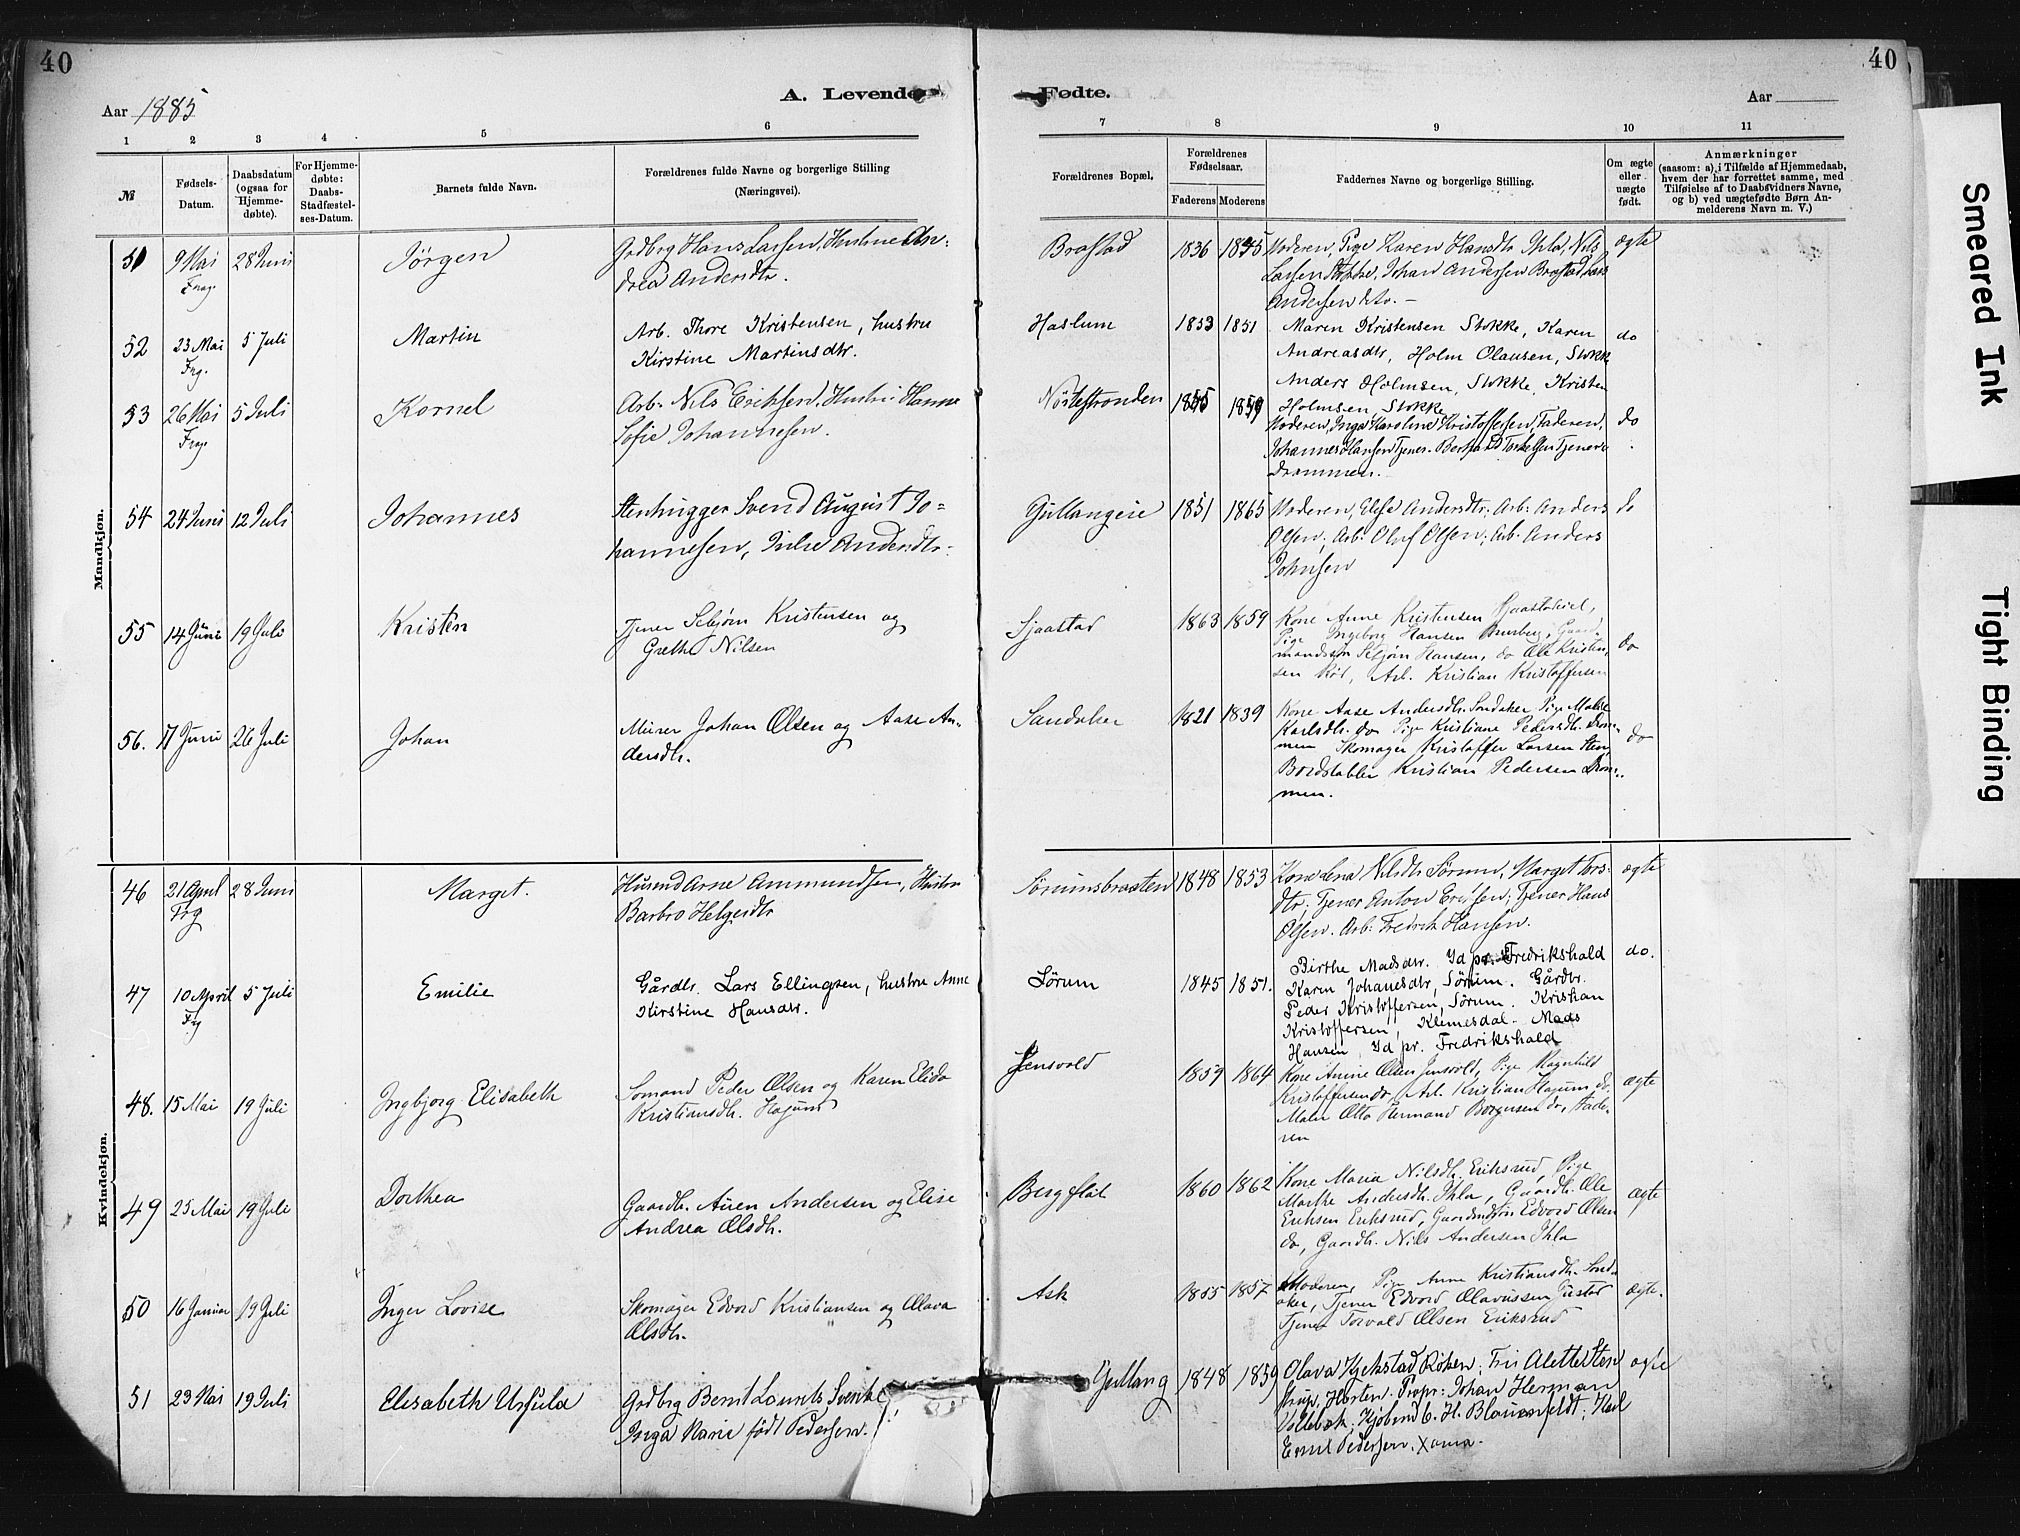 40
40
A. Levende Fødte.
Aar 1885
Aar
1 2 3 4 5 6 7 8 9 10 11
№
Fødsels-
Datum.
Daabsdatum
(ogsaa for
Hjemme-
døbte).
For Hjemme-
døbte:
Daabs-
Stadfæstel-
ses-Datum.
Barnets fulde Navn.
Forældrenes fulde Navne og borgerlige Stilling
(Næringsvei).
Forældrenes Bopæl,
Forældrenes
Fødselsaar.
Faderens Moderens
Faddernes Navne og borgerlige Stilling.
Om ægte
eller
uægte
født.
Anmærkninger
(saasom: a) i Tilfælde af Hjemmedaab,
hvem der har forrettet samme, med
Tilføielse af to Daabsvidners Navne,
og b) ved uægtefødte Børn An-
melderens Navn m. V.)
Mandkjøn.
51 9 Mai 28 Juni Jørgen Gdbrg Hans Larsen, Hustru An-
drea Andersdtr. Brastad 1836 1845 Moderen, Pige Karen Hansdtr Ihla, Nils
Larsen Stokke, Johan Andersen Brastad, Lars
Andersen do. — ægte
52 23 Mai Frg. 5 Juli Martin Arb. Thore Kristensen, hustru
Kirstine Martinsdtr. Haslum 1853 1851 Maren Kristensen Stokke, Karen
Andreasdtr, Holm Olausen, Stokke
Anders Holmsen, Stokke, Kristen
Holmsen, Stokke do
53 26 Mai 5 Juli Kornel Arb. Nils Eriksen, Hustru Hanne
Sofie Johannesen. Nørstestranden 1855 1859 Moderen, Inga Karoline Kristoffersen, Faderen,
Johannes Hansen Tjener. Tjener
Drammen. do
54 24 Juni 12 Juli Johannes Stenhugger Svend August Jo-
hannesen, Andersdtr. Gullangeie 1851 1865 Moderen, Andersdtr. Arb: Anders
Olsen, Arb: Oluf Olsen; Arb. Anders
Johnsen do
55 14 Juni 19 Juli Kristen Tjener Sebjørn Kristensen og
Grethe Nilsen Sjaastad 1863 1859 Kone Anne Kristensen Sjaastadeiet,
Pige Ingeborg Hansen Gaard-
mandssøn Sebjørn Hansen, do Ole Kristen-
sen Arb. Kristian Kristoffersen do
56. 17 Juni 26 Juli Johan Murer Johan Olsen og Aase An-
dersdtr. Sandaker 1821 1839 Kone Aase Andersdtr. Sandaker Pige
Karlsdtr. do Pige Kristiane Pedersdtr. Dram-
men Skomager Kristoffer Larsen
Bordstabler Kristian Pedersen Dram-
men. do
Kvindekjøn.
46 21 April Frg 28 Juni Marget. Husmd Arne Ammundsen, Hustru
Barbro Helgesdtr Sørumsbraaten 1848 1853 Kone Lena Nilsdtr Sørum, Marget Lars-
dtr. Tjener Anton Tjener Hans
Olsen. Arb: Fredrik Hansen. ægte
47 10 April Frg 5 Juli Emilie Gårdbr. Lars Ellingsen, hustru Anne
Kirstine Hansdtr. Sørum 1845 1851. Birthe Madsdtr. Id pr. Fredrikshald
Karen Johanesdtr, Sørum. Gårdbr.
Peder Kristoffersen, Sørum. Kristian
Kristoffersen, Klemesdal. Mads
Hansen, Id pr. Fredrikshald do.
48. 15 Mai 19 Juli Ingbjorg Elisabeth Sømand Peder Olsen og Karen Elida
Kristiansdtr. Hajum Jensvold 1859 1864 Kone Anine Olsen Jensvold, Pige Ragnhild
Kristoffersen do, Arb. Kristian Hajum do,
Maler Otto Hermand Borgersen do, Fade-
ren ægte
49 25 Mai 19 Juli Dorthea Gaardbr. Auen Andersen og Elise
Andrea Olsdtr. Bergflat 1860 1862 Kone Maria Nilsdtr. Eriksrud, Pige
Marthe Andersdtr. Ihla, Gaardbr. Ole
Eriksen Eriksrud, Gaardmdssøn Edvard Olsen
do, Gaardbr. Nils Andersen Ihla ægte
50 16 Januar 19 Juli Inger Lovise Skomager Edvard Kristiansen og Olava
Olsdtr. Ask 1855 1857 Moderen, Pige Anne Kristiansdtr. Sand-
aker, Tjener Edvard Olavussen
Tjener Torvald Olsen Eriksrud ægte.
51 23 Mai 19 Juli Elisabeth Ursula Gdbrg Bernt Laurits Svenke
Inga Marie født Pedersen. Gullang 1848 1859 Olava Kjekstad Røken; Fru Alette Sten-
strup, Horten. Propr: Johan Herman
Vollebæk; Kjøbmd C. H. Blauenfeldt; Karl
Emil Pedersen, Xania. ægte
Smeared Ink
Tight Binding